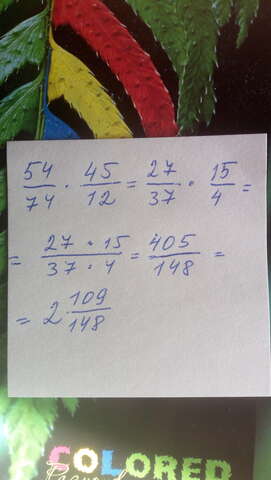 54/74 · 45/12 = 27/37 · 15/4 =
= 27 · 15/37 · 4 = 405/148 =
= 2 109/148
COLORED